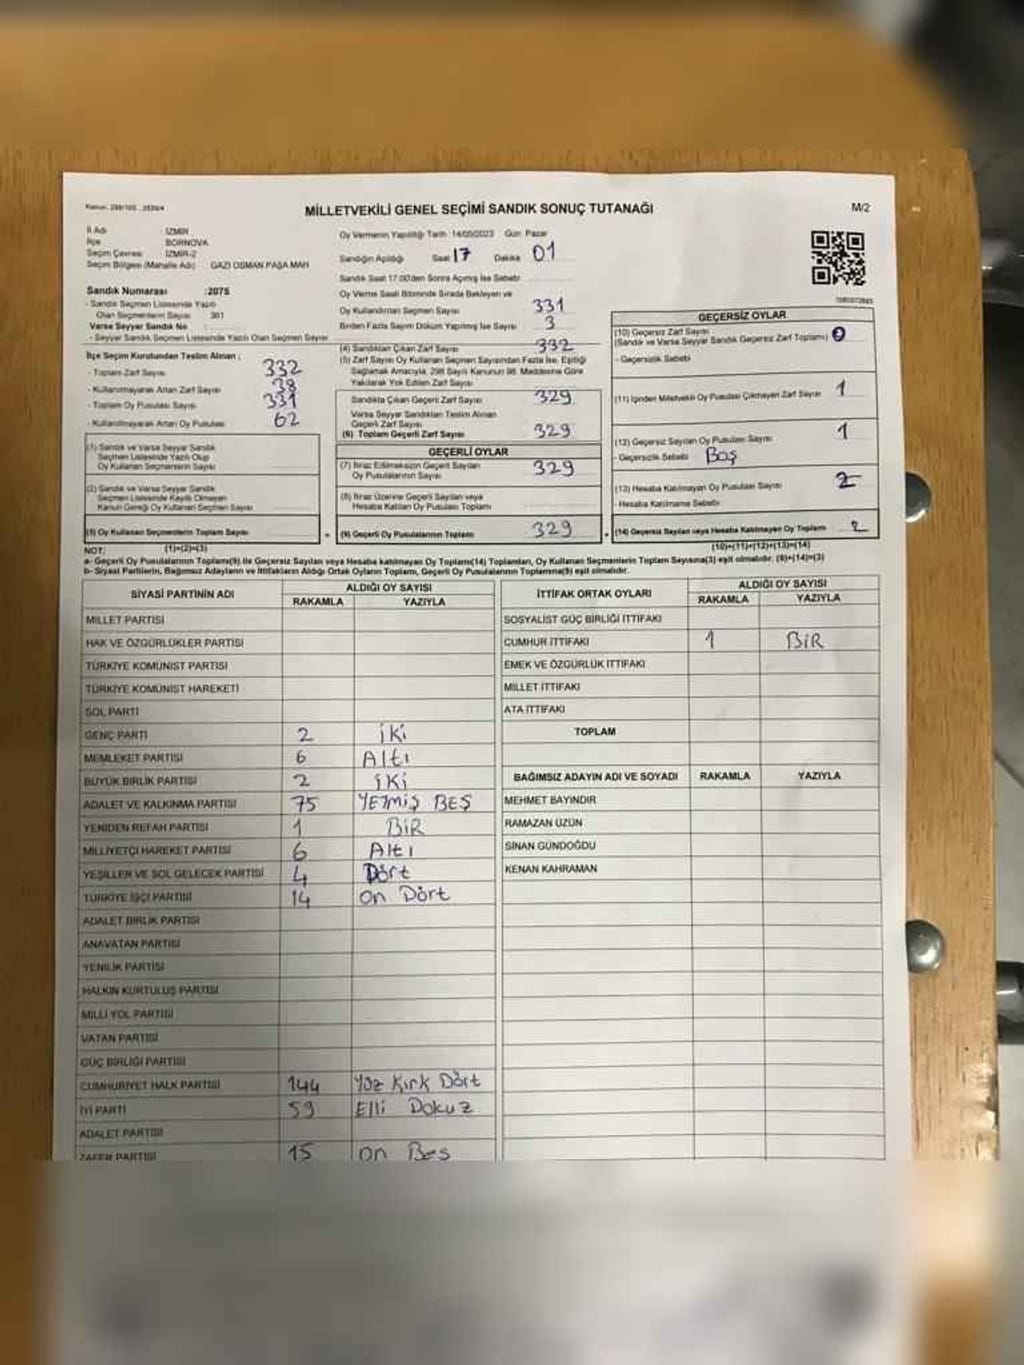 MİLLETVEKİLİ GENEL SEÇİMİ SANDIK SONUÇ TUTANAĞI
M/2
İl Adı İZMİR
İlçe BORNOVA
Seçim Çevresi İZMİR-2
Seçim Bölgesi (Mahalle Adı) GAZI OSMAN PAŞA MAH
Sandık Numarası :2075
- Sandık Seçmen Listesinde Yazılı
Olan Seçmenlerin Sayısı 361
Varsa Seyyar Sandık No
- Seyyar Sandık Seçmen Listesinde Yazılı Olan Seçmen Sayısı
Oy Vermenin Yapıldığı Tarih 14/05/2023 Gün Pazar
Sandığın Açıldığı Saat 17 Dakika 01
Sandık Saat 17.00'den Sonra Açılmış İse Sebebi
Oy Verme Saati Bitiminde Sırada Bekleyen ve
Oy Kullandırılan Seçmen Sayısı 331
Birden Fazla Sayım Döküm Yapılmış İse Sayısı 3
İlçe Seçim Kurulundan Teslim Alınan ;
- Toplam Zarf Sayısı 332
- Kullanılmayarak Artan Zarf Sayısı 38
- Toplam Oy Pusulası Sayısı 331
- Kullanılmayarak Artan Oy Pusulası 62
(1) Sandık ve Varsa Seyyar Sandık
Seçmen Listesinde Yazılı Olup
Oy Kullanan Seçmenlerin Sayısı
(2) Sandık ve Varsa Seyyar Sandık
Seçmen Listesinde Kayıtlı Olmayan
Kanun Gereği Oy Kullanan Seçmen Sayısı
(3) Oy Kullanan Seçmenlerin Toplam Sayısı
(1)+(2)=(3)
(4) Sandıktan Çıkan Zarf Sayısı 332
(5) Zarf Sayısı Oy Kullanan Seçmen Sayısından Fazla İse, Eşitliği
Sağlamak Amacıyla, 298 Sayılı Kanunun 98. Maddesine Göre
Yakılarak Yok Edilen Zarf Sayısı
Sandıkta Çıkan Geçerli Zarf Sayısı 329
Varsa Seyyar Sandıktan Teslim Alınan
Geçerli Zarf Sayısı
(6) Toplam Geçerli Zarf Sayısı 329
GEÇERLİ OYLAR
(7) İtiraz Edilmeksizin Geçerli Sayılan
Oy Pusulalarının Sayısı 329
(8) İtiraz Üzerine Geçerli Sayılan veya
Hesaba Katılan Oy Pusulası Toplamı
(9) Geçerli Oy Pusulalarının Toplamı 329
GEÇERSİZ OYLAR
(10) Geçersiz Zarf Sayısı
(Sandık ve Varsa Seyyar Sandık Geçersiz Zarf Toplamı)
- Geçersizlik Sebebi
(11) İçinden Milletvekili Oy Pusulası Çıkmayan Zarf Sayısı 1
(12) Geçersiz Sayılan Oy Pusulası Sayısı 1
- Geçersizlik Sebebi Boş
(13) Hesaba Katılmayan Oy Pusulası Sayısı 2
- Hesaba Katılmama Sebebi
(14) Geçersiz Sayılan veya Hesaba Katılmayan Oy Toplamı 2
(10)+(11)+(12)+(13)=(14)
NOT:
a- Geçerli Oy Pusulalarının Toplamı(9) ile Geçersiz Sayılan veya Hesaba katılmayan Oy Toplamı(14) Toplamları, Oy Kullanan Seçmenlerin Toplam Sayısına(3) eşit olmalıdır. (9)+(14)=(3)
b- Siyasi Partilerin, Bağımsız Adayların ve İttifakların Aldığı Ortak Oyların Toplamı, Geçerli Oy Pusulalarının Toplamına(9) eşit olmalıdır.
SİYASİ PARTİNİN ADI ALDIĞI OY SAYISI
RAKAMLA YAZIYLA
MİLLET PARTİSİ
HAK VE ÖZGÜRLÜKLER PARTİSİ
TÜRKİYE KOMÜNİST PARTİSİ
TÜRKİYE KOMÜNİST HAREKETİ
SOL PARTİ
GENÇ PARTİ 2 iki
MEMLEKET PARTİSİ 6 Altı
BÜYÜK BİRLİK PARTİSİ 2 iki
ADALET VE KALKINMA PARTİSİ 75 YETMİŞ BEŞ
YENİDEN REFAH PARTİSİ 1 BİR
MİLLİYETÇİ HAREKET PARTİSİ 6 Altı
YEŞİLLER VE SOL GELECEK PARTİSİ 4 Dört
TÜRKİYE İŞÇİ PARTİSİ 14 on Dört
ADALET BİRLİK PARTİSİ
ANAVATAN PARTİSİ
YENİLİK PARTİSİ
HALKIN KURTULUŞ PARTİSİ
MİLLİ YOL PARTİSİ
VATAN PARTİSİ
GÜÇ BİRLİĞİ PARTİSİ
CUMHURİYET HALK PARTİSİ 144 Yüz Kırk Dört
İYİ PARTİ 59 Elli Dokuz
ADALET PARTİSİ
ZAFER PARTİSİ 15 on Beş
İTTİFAK ORTAK OYLARI ALDIĞI OY SAYISI
RAKAMLA YAZIYLA
SOSYALİST GÜÇ BİRLİĞİ İTTİFAKI
CUMHUR İTTİFAKI 1 BİR
EMEK VE ÖZGÜRLÜK İTTİFAKI
MİLLET İTTİFAKI
ATA İTTİFAKI
TOPLAM
BAĞIMSIZ ADAYIN ADI VE SOYADI RAKAMLA YAZIYLA
MEHMET BAYINDIR
RAMAZAN ÜZÜN
SİNAN GÜNDOĞDU
KENAN KAHRAMAN